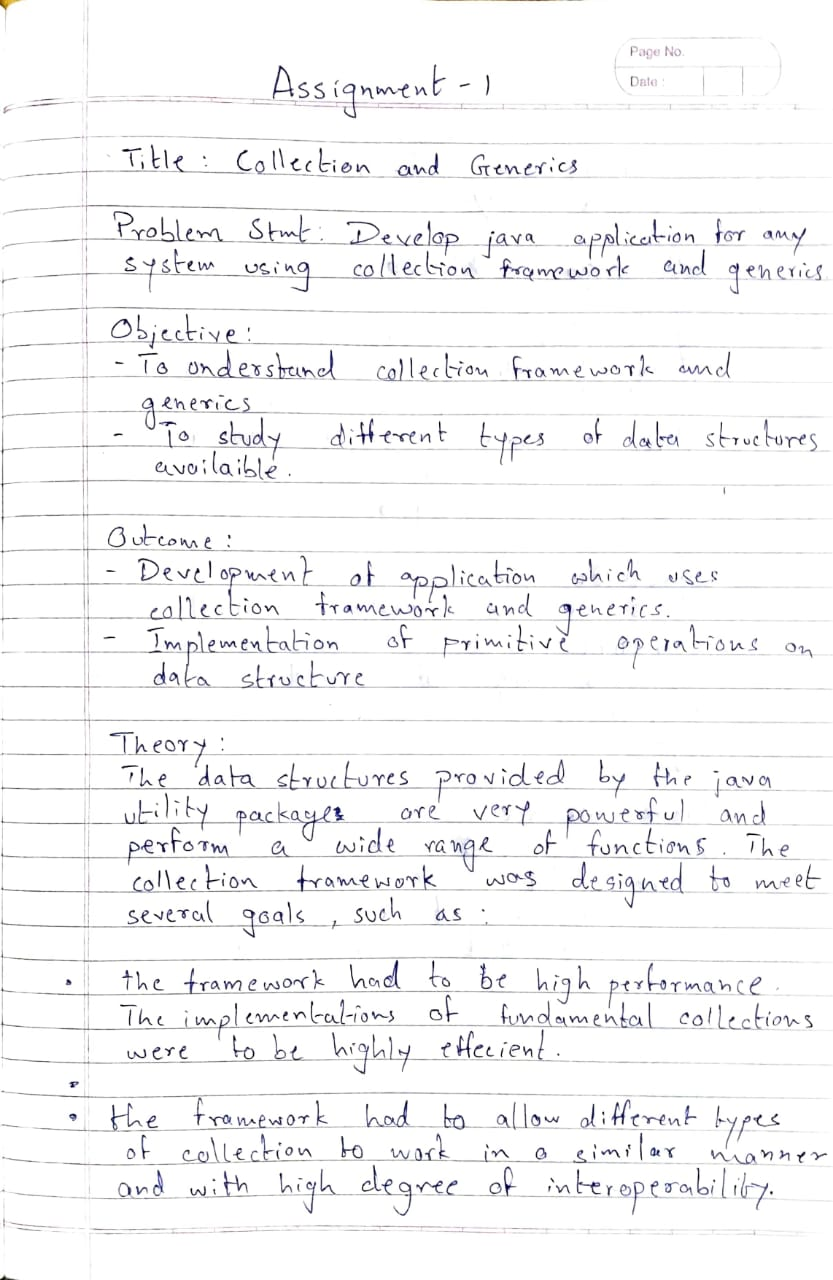 Page No.
Date :
Assignment - 1
Title : Collection and Generics
Problem Stmt: Develop java application for any
system using collection framework and generics
Objective :
- To understand collection framework and
generics
- To study different types of data structures
availaible.
Outcome :
- Development of application which uses
collection framework and generics.
- Implementation of primitive operations on
data structure
Theory :
The data structures provided by the java
utility packages are very powerful and
perform a wide range of functions. The
collection framework was designed to meet
several goals, such as :
• the framework had to be high performance.
The implementations of fundamental collections
were to be highly effecient.
• the framework had to allow different types
of collection to work in a similar manner
and with high degree of interoperability.